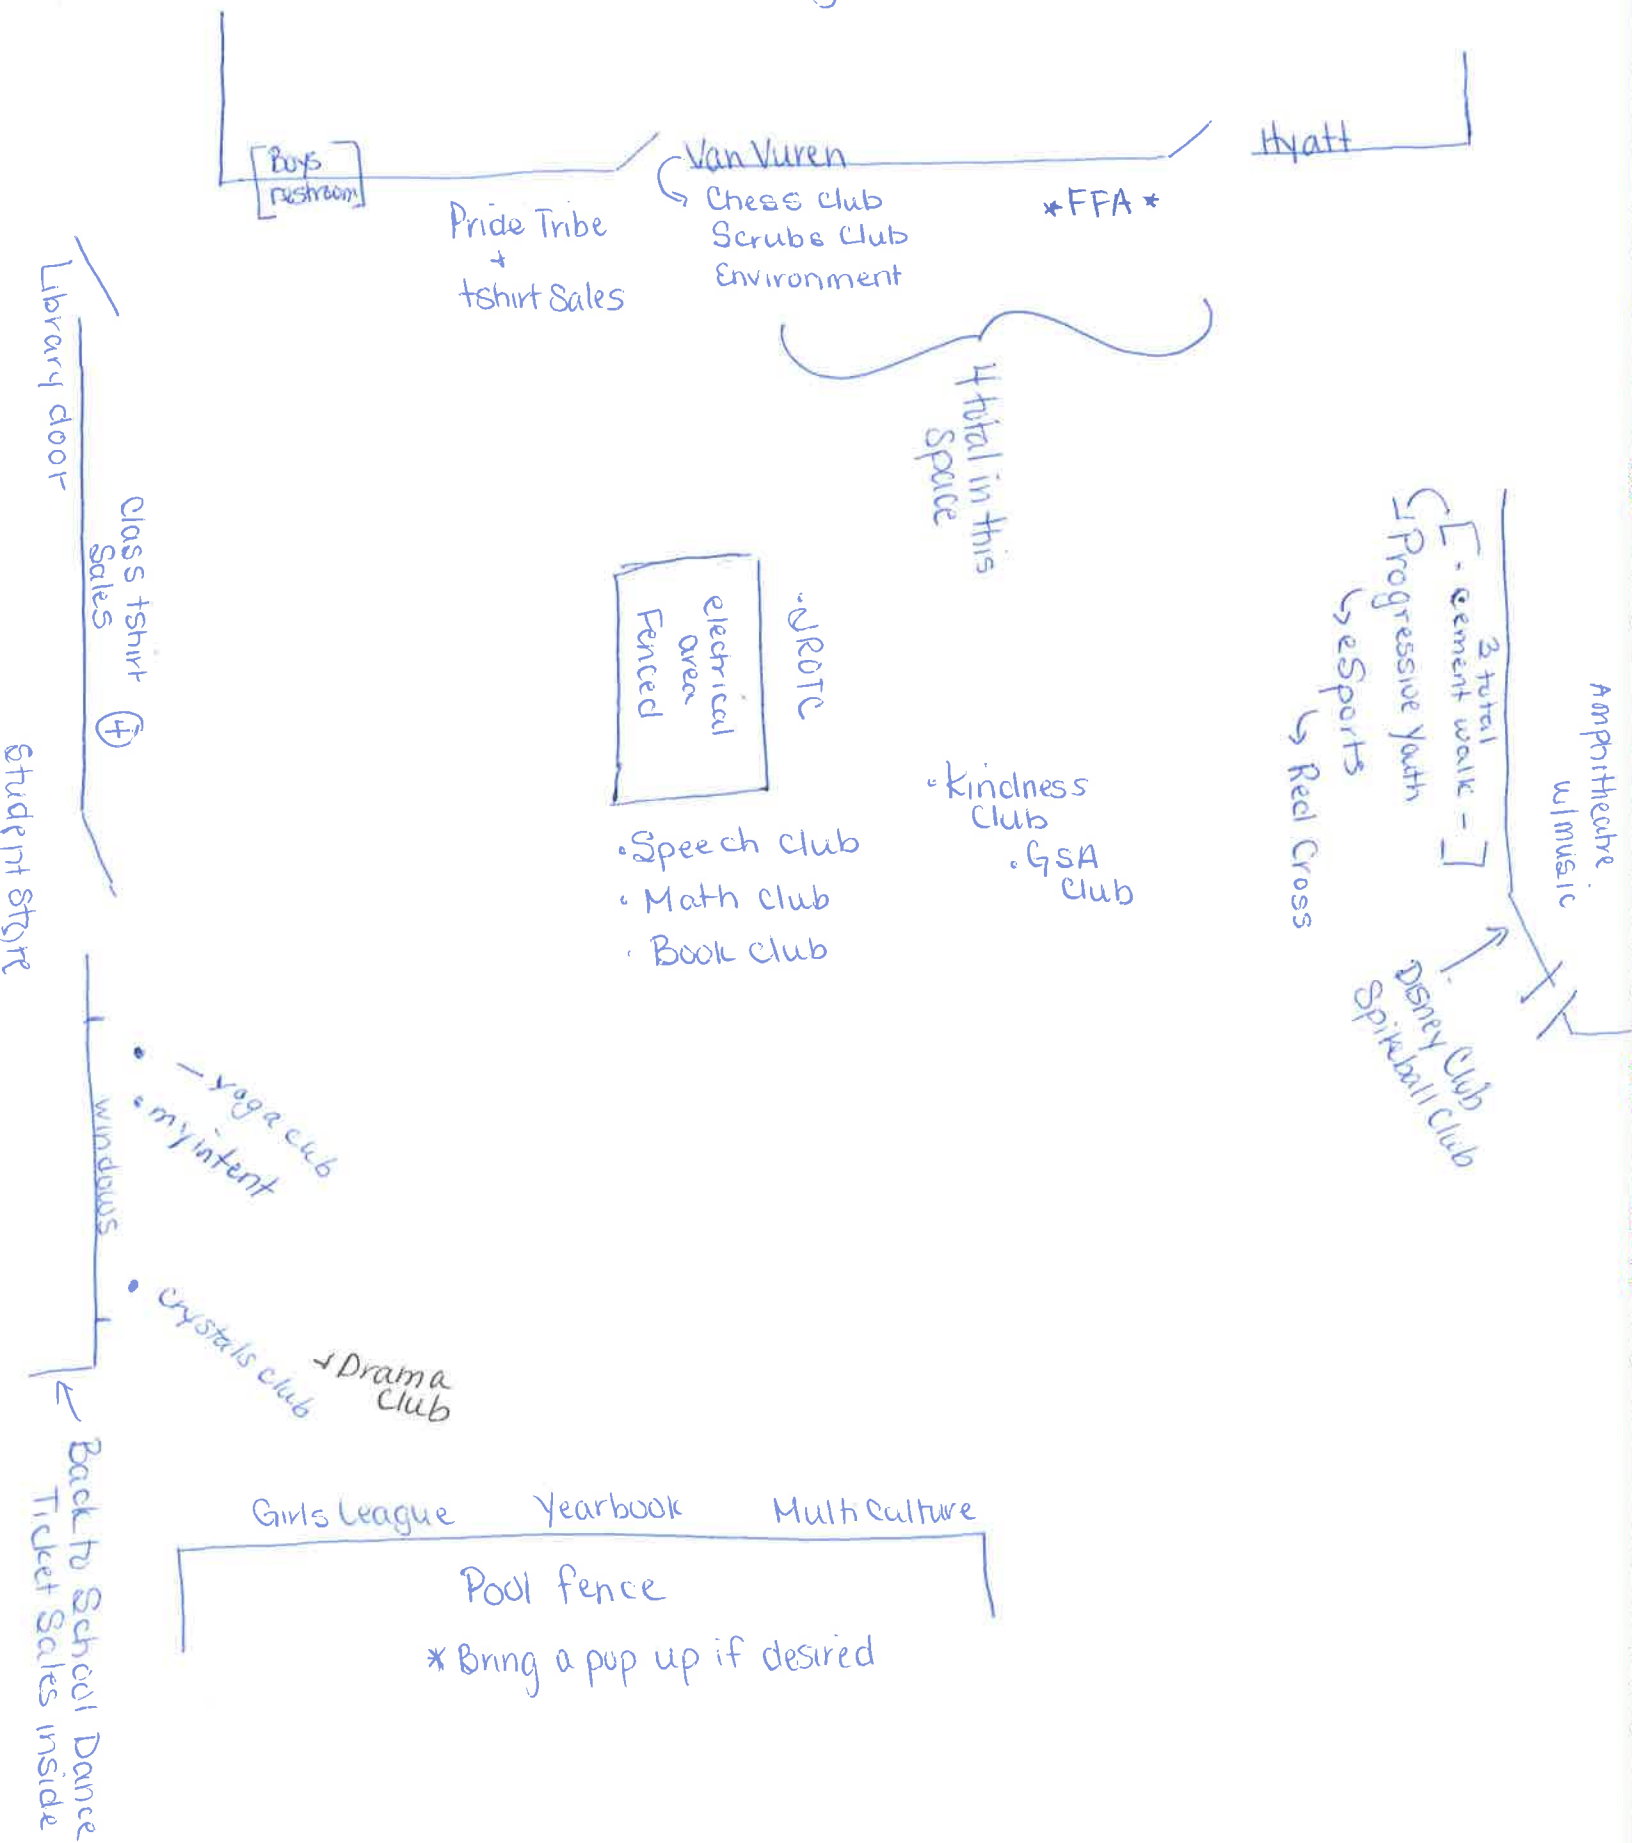 Boys
restroom
Van Vuren
Hyatt
Pride Tribe
+
tshirt Sales
Chess Club
Scrubs Club
Environment
*FFA*
4 total in this
Space
Library door
Class tshirt
Sales
4
Student Store
electrical
area
Fenced
•NJROTC
•Kindness
Club
•GSA
Club
•Speech Club
•Math Club
•Book Club
3 total
[-cement walk-]
Progressive Youth
eSports
Red Cross
Amphitheatre
w/music
Disney Club
Spikeball Club
windows
• - yoga club
• myintent
• crystals club
+ Drama
Club
Back to School Dance
Ticket Sales inside
Girls League Yearbook Multi Culture
Pool fence
* Bring a pop up if desired